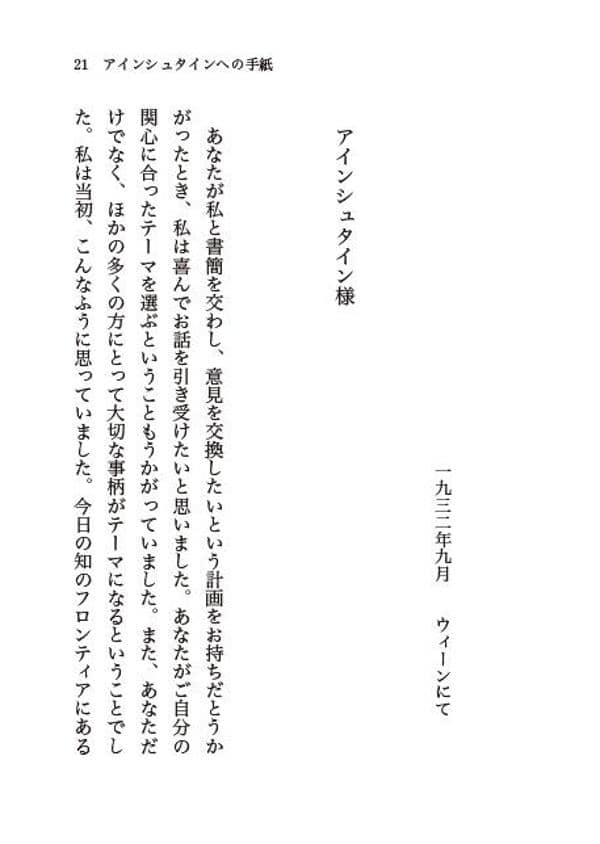 21　アインシュタインへの手紙
一九三二年九月　ウィーンにて
アインシュタイン様
あなたが私と書簡を交わし、意見を交換したいという計画をお持ちだとうか
がったとき、私は喜んでお話を引き受けたいと思いました。あなたがご自分の
関心に合ったテーマを選ぶということもうかがっていました。また、あなただ
けでなく、ほかの多くの方にとって大切な事柄がテーマになるということでし
た。私は当初、こんなふうに思っていました。今日の知のフロンティアにある